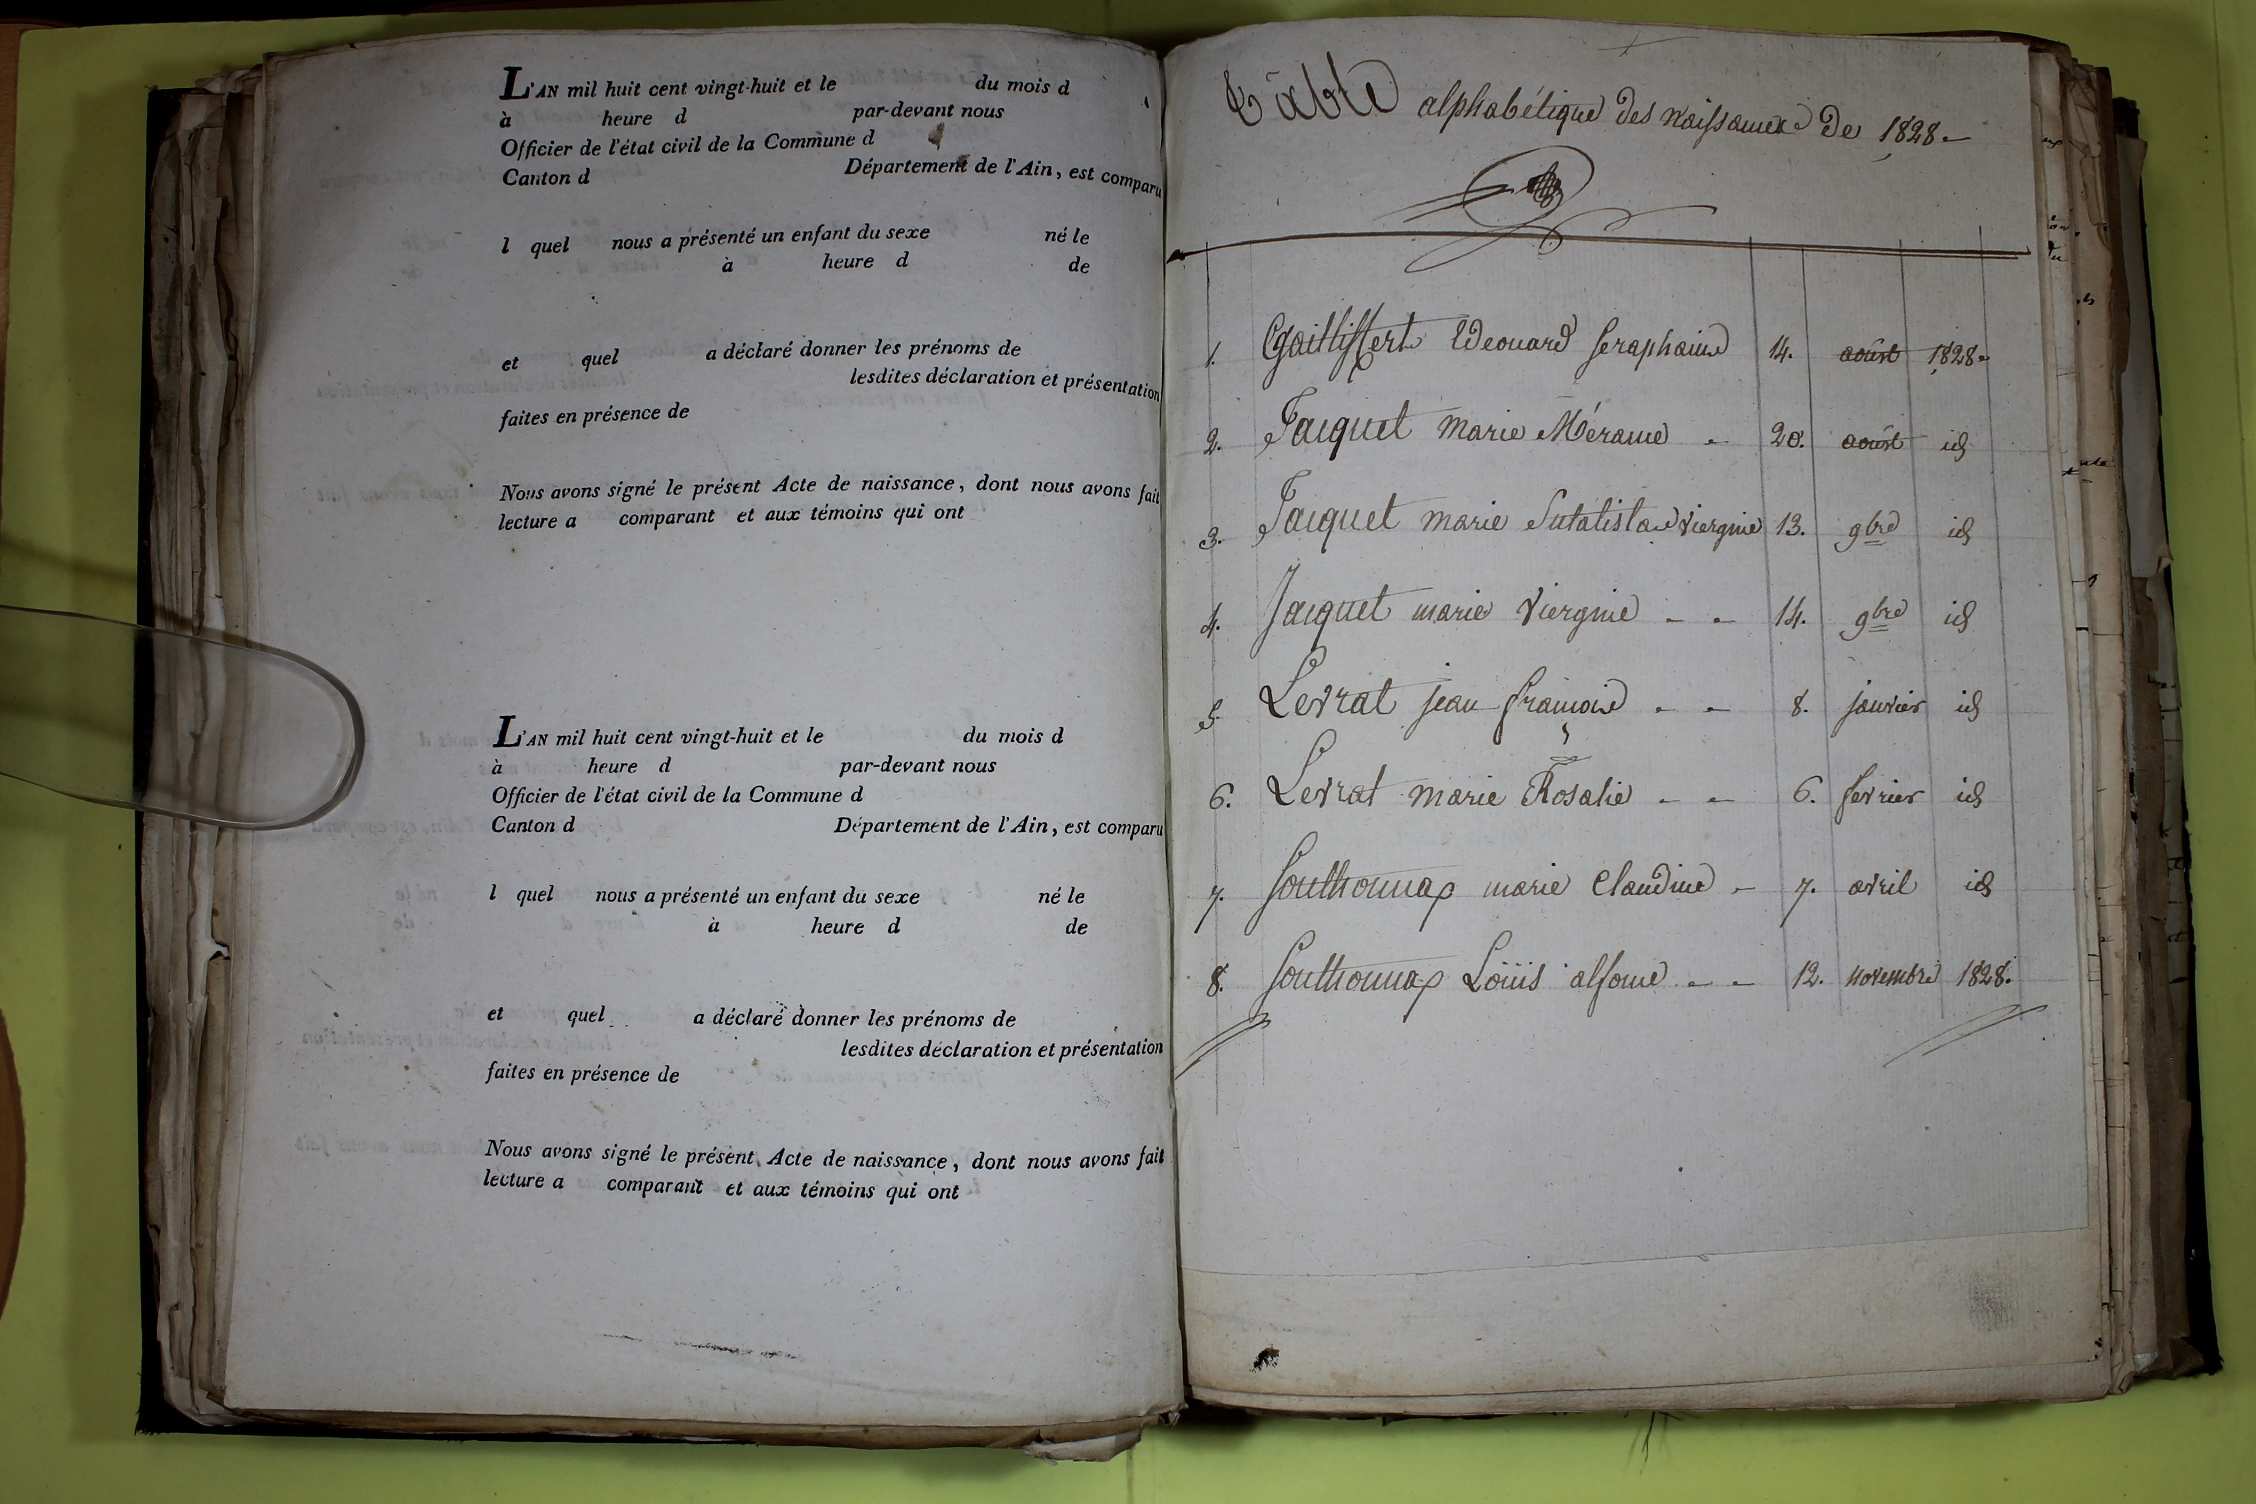 L'AN mil huit cent vingt-huit et le du mois d
à heure d par-devant nous
Officier de l'état civil de la Commune d
Canton d Département de l'Ain, est comparu
l quel nous a présenté un enfant du sexe né le
à heure d de
et quel a déclaré donner les prénoms de
lesdites déclaration et présentation
faites en présence de
Nous avons signé le présent Acte de naissance, dont nous avons fait
lecture a comparant et aux témoins qui ont
L'AN mil huit cent vingt-huit et le du mois d
à heure d par-devant nous
Officier de l'état civil de la Commune d
Canton d Département de l'Ain, est comparu
l quel nous a présenté un enfant du sexe né le
à heure d de
et quel a déclaré donner les prénoms de
lesdites déclaration et présentation
faites en présence de
Nous avons signé le présent Acte de naissance, dont nous avons fait
lecture a comparant et aux témoins qui ont
Table alphabétique des Naissances de 1828.
1. Edeouard Seraphain 14. août 1828.
2. Jacquet Marie 20. août id
3. Jacquet Marie Viergnie 13. 9bre id
4. Jacquet marie Viergnie 14. 9bre id
5. Levrat jean françois 8. janvier id
6. Levrat Marie Rosalie 6. fevrier id
7. Southonnax marie Claudine 7. avril id
8. Southonnax Loüis alfonse 12. novembre 1828.